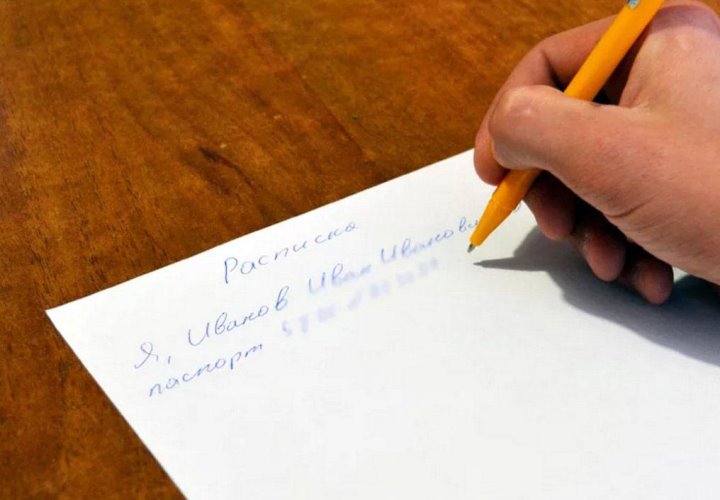 Расписка
Я, Иванов Иван Иванович
паспорт